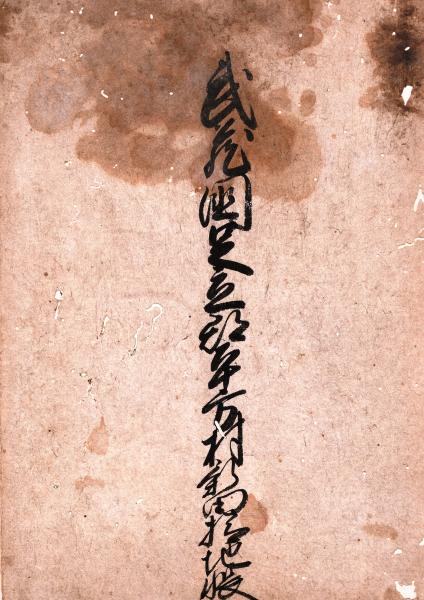 武蔵国足立郡平方村新田検地帳